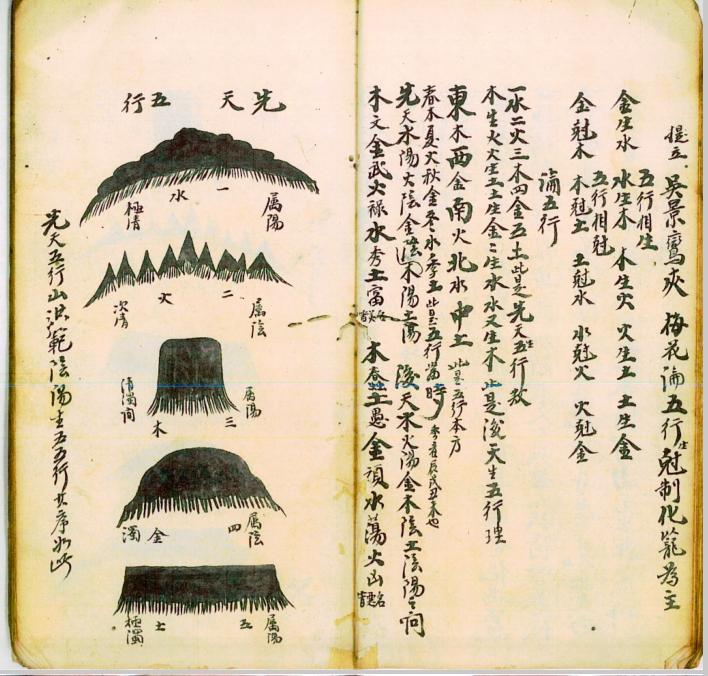 吳景鸞 梅花論五行生尅制化籠為主
五行相生
金生水 水生木 木生火 火生土 土生金
五行相尅
金尅木 木尅土 土尅水 水尅火 火尅金
論五行
一水二火三木四金五土此是先天五行
木生火火生土土生金金生水水又生木此是後天生五行理
東木西金南火北水中土 此是五行本方
春木夏火秋金冬水季土 此是五行當時
先天水陽火陰金陰木陽土陽 後天木火陽金水陰土陰陽之間
木文金武火祿水秀土富 木春土愚金頑水蕩火凶
先天五行
一水 屬陽 極清
二火 屬陰 次清
三木 屬陽 清濁間
四金 屬陰 濁
五土 屬陽 極濁
先天五行山洪範陰陽主五五行其序如此